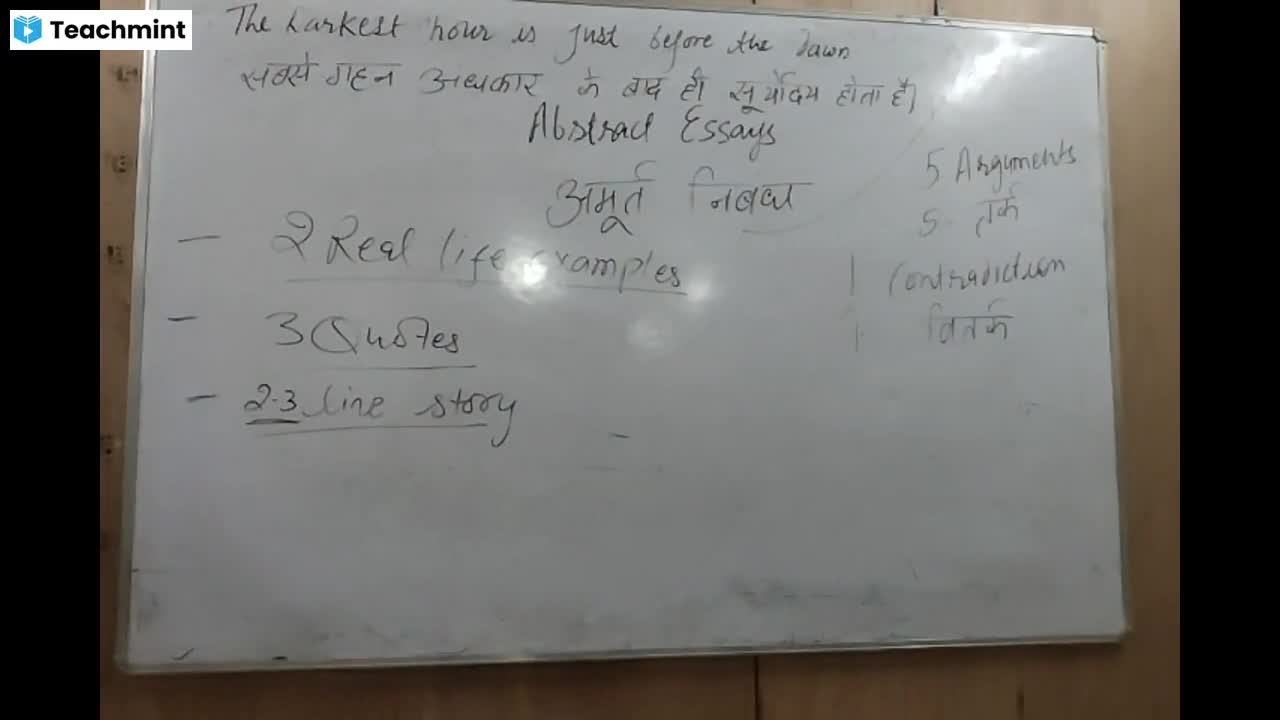 Teachmint
The darkest hour is just before the dawn
सबसे गहन अंधकार के बाद ही सूर्योदय होता है।
Abstract Essays
अमूर्त निबंध
5 Arguments
5 तर्क
– 2 Real life examples
1 Contradiction
1 वितर्क
– 3 Quotes
– 2-3 line story